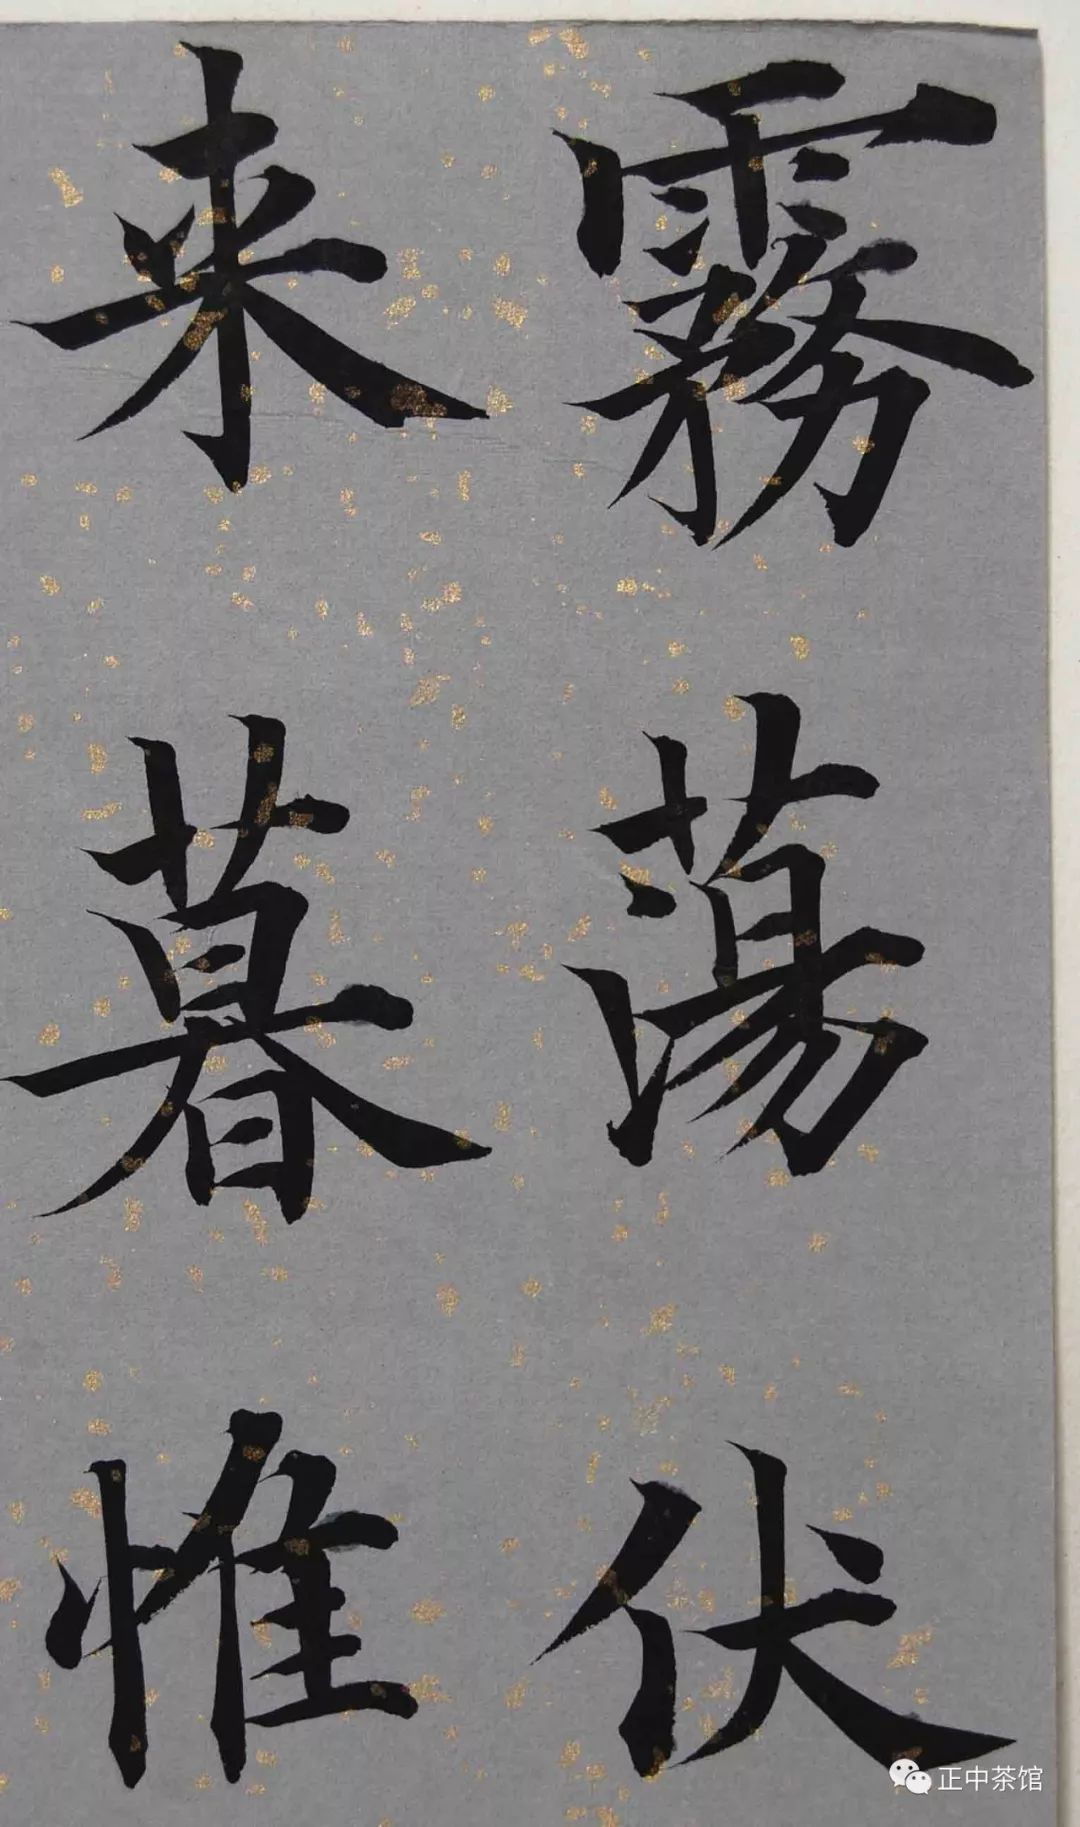 霧蕩伏
来暮惟
正中茶馆